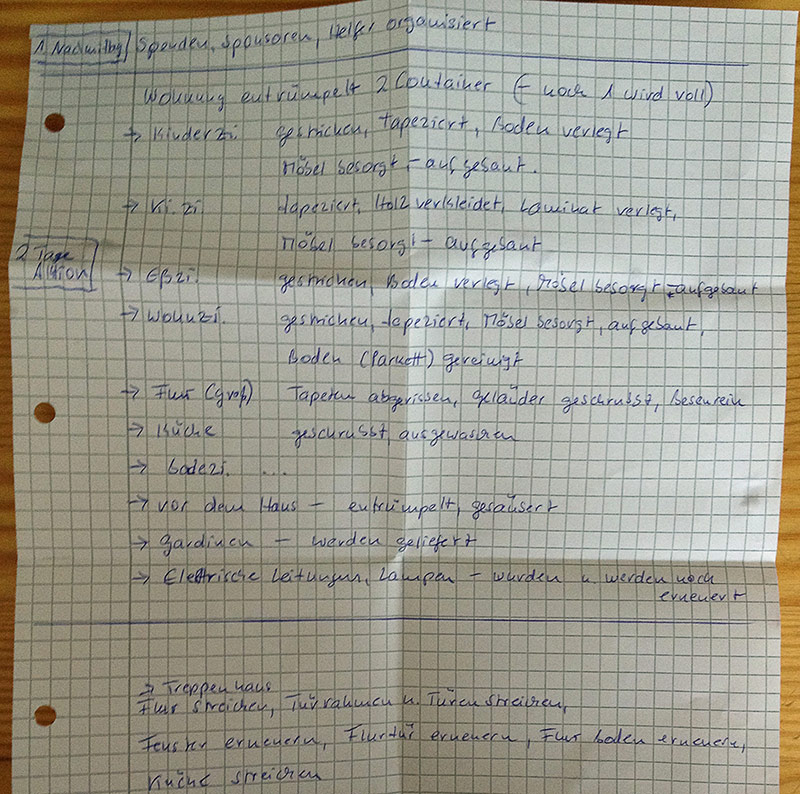 1 Nachmittag Spenden, Sponsoren, Helfer organisiert
Wohnung entrümpelt 2 Container (- noch 1 wird voll)
→ Kinderzi gestrichen, tapeziert, Boden verlegt
Möbel besorgt - aufgebaut.
→ Ki. zi tapeziert, Holz verkleidet, Laminat verlegt,
Möbel besorgt - aufgebaut
2 Tage
Aktion
→ Eßzi. gestrichen, Boden verlegt, Möbel besorgt - aufgebaut
→ Wohnzi. gestrichen, tapeziert, Möbel besorgt, aufgebaut,
Boden (Parkett) gereinigt
→ Flur (groß) Tapeten abgerissen, geländer geschrubbt, Besenrein
→ Küche geschrubbt, ausgewaschen
→ Badezi. ...
→ vor dem Haus - entrümpelt, gesäubert
→ Gardinen - werden geliefert
→ Elektrische Leitungen, Lampen - wurden u. werden noch
erneuert
→ Treppenhaus
Flur streichen, Türrahmen u. Türen streichen,
Fenster erneuern, Flurtür erneuern, Flur boden erneuern,
Küche streichen